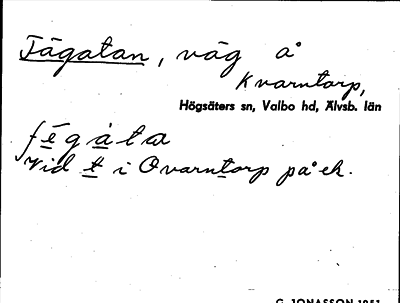 Fägatan, väg å
Kvarntorp,
Högsäters sn, Valbo hd, Älvsb. län
fègàta
Vid t i Qvarntorp på ek.
G. JONASSON 1951